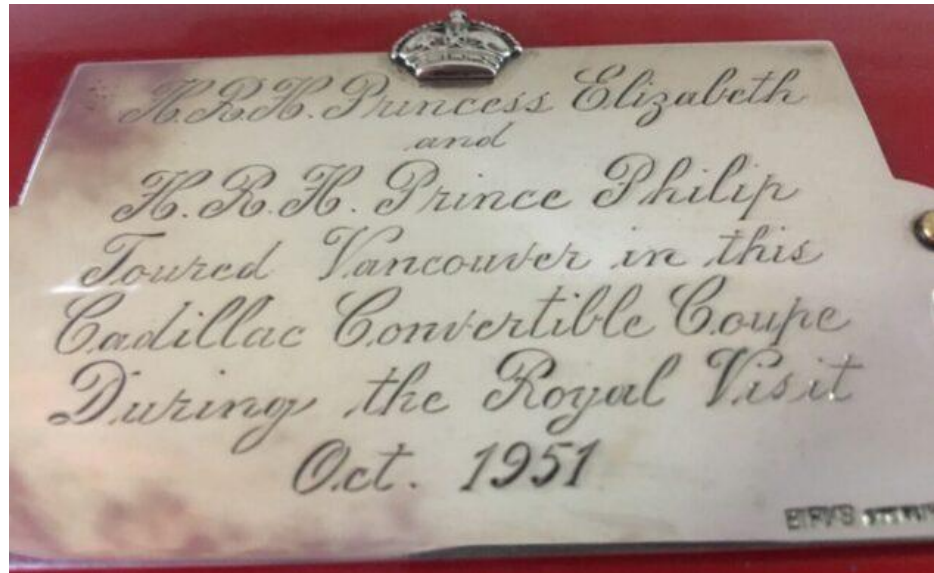 H.R.H. Princess Elizabeth
and
H.R.H. Prince Philip
Toured Vancouver in this
Cadillac Convertible Coupe
During the Royal Visit
Oct. 1951
BIRKS STERLING